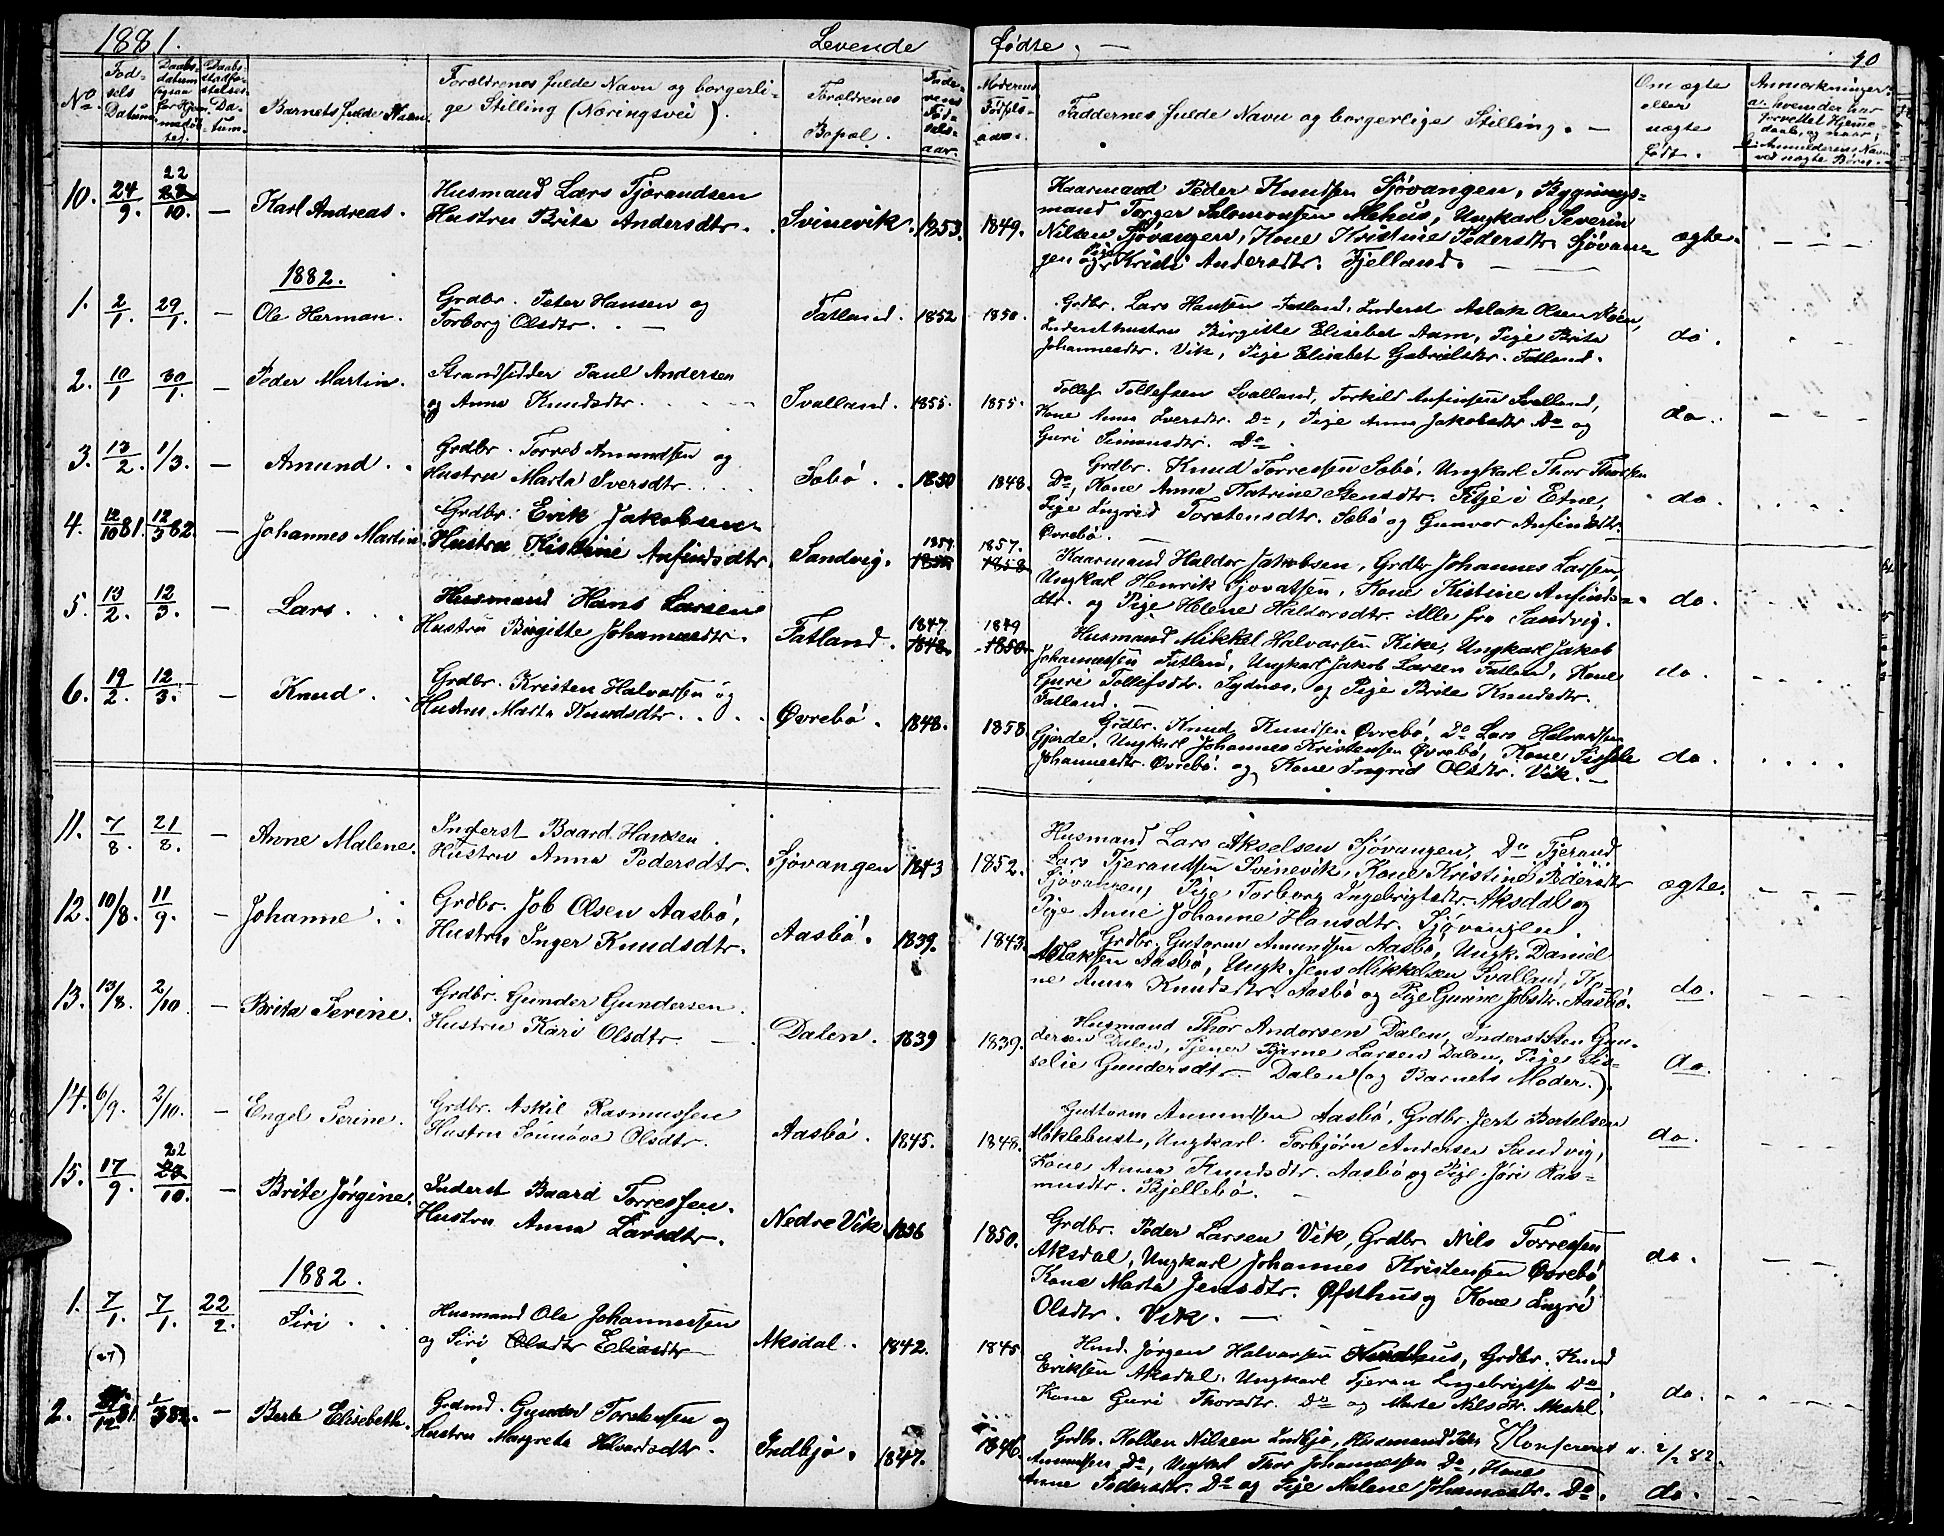 1881.
Levende
fødte.
40
No.
Fødsels Datum.
Daabs-datum (ogsaa for Hjemmedøbte).
Daabs-stadfæstelses-Datum.
Barnets fulde Navn.
Forældrenes fulde Navn og borgerlige Stilling (Næringsvei).
Forældrenes Bopæl.
Faderens Fødselsaar.
Moderens Fødselsaar.
Faddernes fulde Navn og borgerlige Stilling.
Om ægte eller uægte født.
Anmærkninger:
10. 24/9. 22/10. — Karl Andreas. Husmand Lars Tjerandsen
Hustru Brita Andersdtr. Svinevik. 1853. 1849.
Kaarmand Peder Knudsen Sjøvangen, Bygnings-
mand Torger Salomonsen Mehus, Ungkarl Severin
Nilsen Sjøvangen, Kone Kristine Pedersdtr. Sjøvan-
gen og Pige Kristi Andersdtr. Fjelland. ægte.
1882.
1. 2/1. 29/1. — Ole Herman. Grdbr. Peter Hansen og
Torborg Olsdtr. Fatland. 1852 1850.
Grdbr. Lars Hansen Fatland, Inderst Aslak Olsen Røen,
Inderst hustru Birgitte Elisebet Aam, Pige Brita
Johannesdtr. Vik, Pige Elisabet Gabrielsdtr. Fatland. do.
2. 10/1 30/1. — Peder Martin. Strandsidder Paul Andersen
og Anna Knudsdtr. Svalland. 1855. 1855.
Tollef Tollefsen Svalland, Torkild Anfinsen Svalland,
Kone Anna Iversdtr. Do, Pige Anna Jakobsdtr Do og
Guri Simonsdtr. Do. do.
3. 13/2. 1/3. — Amund. Grdbr. Torres Amundsen og
Hustru Marta Iversdtr. Sæbø. 1850 1848.
Grdbr. Knud Torressen Sæbø, Ungkarl Thor Thorsen
Do, Kone Anna Katrine Stensdtr. Filje i Etne,
Pige Ingrid Torstensdtr. Sæbø og Gunvor Anfindsdtr.
Øvrebø. do.
4. 12/10 81. 12/3 82. — Johannes Martin. Grdbr. Erik Jakobsen
Hustru Kistine Anfindsdtr. Sandvig. 1857.
Kaarmand Haldor Jakobsen, Grdbr Johannes Larsen,
Ungkarl Henrik Sjovatsen, Kone Kistine Anfinds-
dtr. og Pige Helene Haldorsdtr. Alle fra Sandvig. do.
5. 13/2. 12/3. — Lars. Husmand Hans Larsen
Hustru Birgitte Johannesdtr. Fatland. 1847. 1849
Husmand Mikkel Halvorsen Kike, Ungkarl Jakob
Johannessen Fatland, Ungkarl Jakob Larsen Fatland, Kone
Guri Tollefsdtr. Sydnæs, og Pige Brita Knudsdtr.
Fatland. do.
6. 19/2. 12/3. — Knud. Grdbr. Kristen Halvorsen og
Hustru Marta Knudsdtr. Øvrebø. 1848. 1858
Grdbr. Knud Knudsen Øvrebø, Do Lars Halvorsen
Gjerde, Ungkarl Johannes Kristensen Øvrebø, Kone Sissele
Johannesdtr. Øvrebø og Kone Ingrid Olsdtr. Vik. do.
11. 7/8. 21/8. — Anne Malene. Inderst Baard Hansen
Hustru Anna Pedersdtr. Sjøvangen 1843 1852.
Husmand Lars Akselsen Sjøvangen, Do Tjerand
Lars Tjerandsen Svinevik, Kone Kristine Pedersdtr
Sjøvangen, Pige Torborg Ingebrigtsdtr. Aksdal og
Pige Anne Johanne Hansdtr. Sjøvangen. ægte.
12. 10/8. 11/9. — Johanne. Grdbr. Job Olsen Aasbø,
Hustru Inger Knudsdtr. Aasbø. 1839. 1843.
Grdbr. Gutorm Amundsen Aasbø, Ungk. Daniel
Aslaksen Aasbø, Ungk. Jens Mikkelsen Svalland, Ko-
ne Anna Knudsdtr. Aasbø og Pige Gurine Jobsdtr. Aasbø. do.
13. 13/8. 2/10. — Brita Serine. Grdbr. Gunder Gundersen.
Hustru Kari Olsdtr. Dalen. 1839 1839.
Husmand Thor Andersen Dalen, Inderst Sten Gun-
dersen Dalen, Tjener Bjarne Larsen Dalen, Pige Sis-
selie Gundersdtr. Dalen (og Barnets Moder.). do.
14. 6/9. 2/10. — Engel Serine. Grdbr. Askil Rasmussen
Hustru Sønnøve Olsdtr. Aasbø. 1845. 1848.
Guttorm Amundsen Aasbø, Grdbr. Jert Bertelsen
Møklebust, Ungkarl Torbjørn Andersen Sandvig,
Kone Anna Knudsdtr. Aasbø og Pige Jøri Ras-
musdtr. Bjellebø. do.
15. 17/9. 22/10. — Brite Jørgine. Inderst Baard Torressen.
Hustru Anna Larsdtr. Nedre Vik. 1856 1850.
Grdbr. Peder Larsen Vik, Grdbr. Nils Torressen
Aksdal, Ungkarl Johannes Kristensen Øvrebø
Kone Marta Jensdtr. Øfsthus og Kone Ingri
Olsdtr. Vik. do.
1882.
1. 7/1. 7/1. 22/2. Siri. Husmand Ole Johannessen
og Siri Eliasdtr Aksdal. 1842. 1845
Husd. Jørgen Halvorsen Nordhus, Grdbr. Knud
Eriksen Aksdal, Ungkarl Tjeran Ingebrigtsen Do
Kone Guri Thorsdtr. Do og Marte Nilsdtr. Aksdal. do.
2. 12 81. 1/3 82. — Berte Elisebeth. Grdmd. Gunder Torstensen og
Hustru Margrete Halvorsdtr. Indbjø. 1847. 1846.
Grdbr. Kolben Nilsen Indbjø, Husmand Peder
Amundsen Do, Ungkarl Thor Johannessen Do, Kone
Anne Pedersdtr. Do og Pige Malene Johannesdtr. Do. do.
Konfereret 2/2 82.